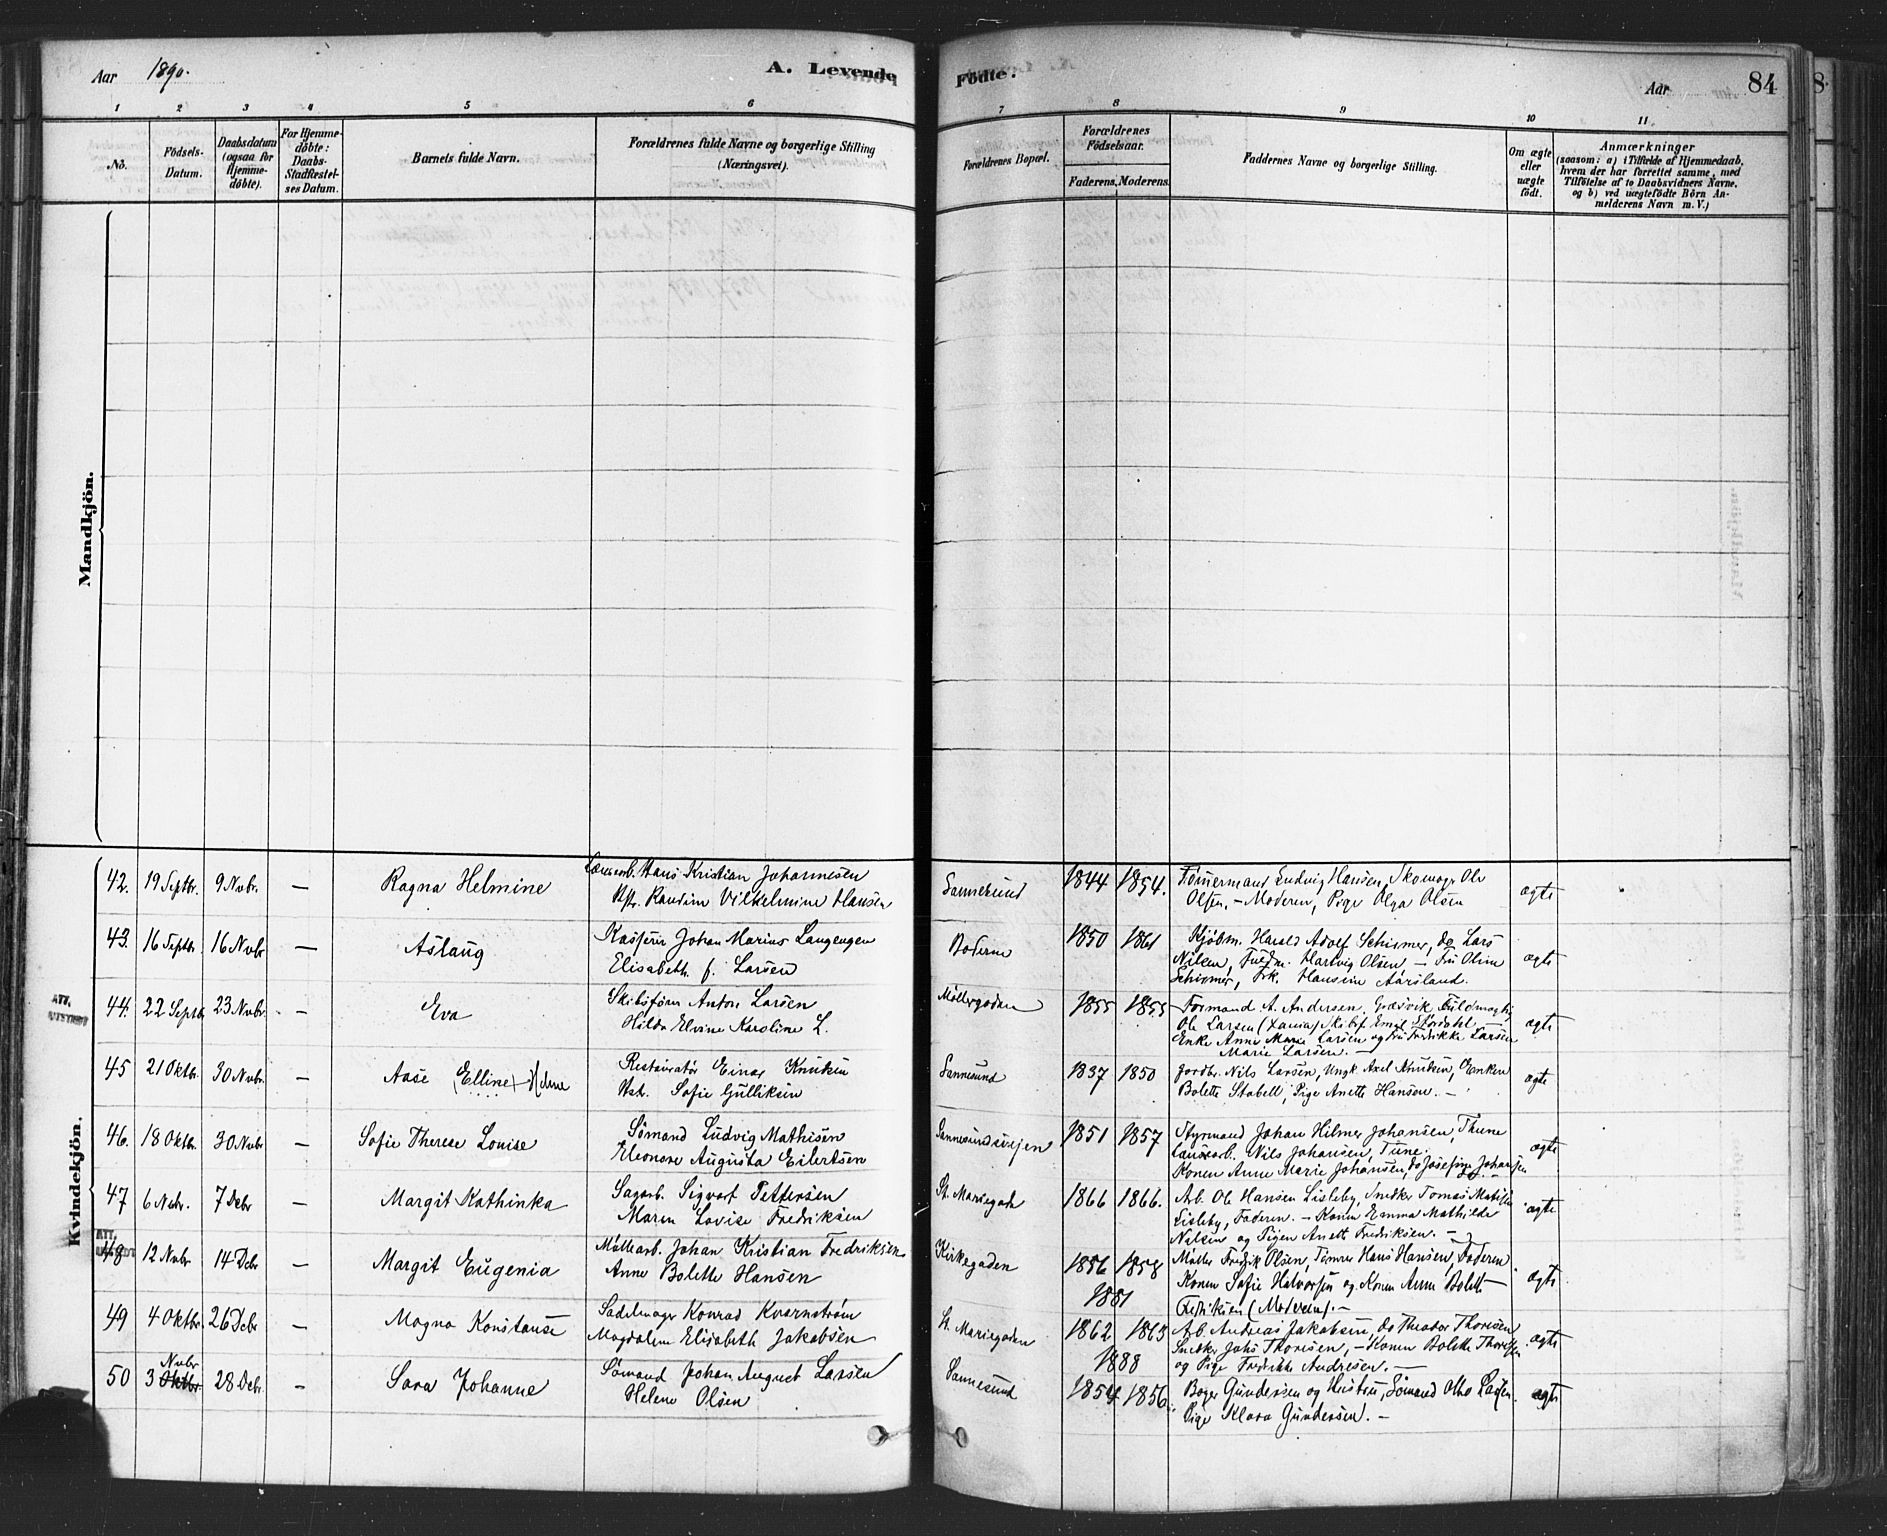 Aar 1890.
A. Levende
Födte.
Aar
84
1 2 3 4 5 6 7 8 9 10 11
No.
Födsels-Datum.
Daabsdatum (ogsaa for Hjemme-döbte).
For Hjemme-döbte: Daabs-Stadfæstel-ses Datum.
Barnets fulde Navn.
Forældrenes fulde Navne og borgerlige Stilling (Næringsvei).
Forældrenes Bopæl.
Forældrenes Födselsaar.
Faderens. Moderens.
Faddernes Navne og borgerlige Stilling.
Om ægte eller uægte födt.
Anmærkninger
(saasom: a) i Tilfælde af Hjemmedaab, hvem der har forrettet samme, med Tilföielse af to Daabsvidners Navne, og b) ved uægtefödte Börn An-melderens Navn m. V.)
Mandkjön.
Kvindekjön.
42. 19 Septbr. 9 Nvbr. — Ragna Helmine
Hans Kristian Johannesen
Hstr. Randine Vilhelmine Hansen
Sannesund 1844 1854.
Tömermand Ludvig Hansen, Skomag. Ole
Olsen. — Moderen, Pige Olga Olsen
ægte
43. 16 Septbr. 16 Nvbr — Aslaug
Kasserer Johan Marius Langengen
Elisabeth f. Larsen
1850 1861
Kjöbm. Harald Adolf Schirmer, do Lars
Nilsen, Hartvig Olsen — Fru Oline
Schirmer, Frk. Hansine Aarsland.
ægte
ATT. UTSTEDT
44. 22 Septbr. 23 Nvbr. — Eva
Skibsförer Anton Larsen
Hilda Elvine Karoline L.
Möllergaden 1855 1855
Formand A. Andersen, Græsvik, Fuldmægtig
Ole Larsen Skibsf. Emil
Enke Anne Marie Larsen og Fru Fredrikke Larsen
Marie Larsen. —
ægte
45 21 Oktbr. 30 Nvbr. — Aase (Elline)
Restauratør Einar Knudsen
Hstr. Sofie Gulliksen
Sannesund 1837 1850
Jordbr. Nils Larsen, Ungk. Axel Knudsen, Enken
Bolette Stabell, Pige Anette Hansen. —
ægte
46. 18 Oktbr. 30 Nvbr — Sofie Therese Louise
Sömand Ludvig Mathisen
Eleonore Augusta Eilertsen
1851 1857
Styrmand Johan Hilmer Johansen, Thune
Nils Johansen, Tune.
Konen Anne Marie Johansen, do Josefine Johansen
ægte
47 6 Nvbr. 7 Debr — Margit Kathinka
Sagarb. Sigvart Pettersen
Maren Lovise Fredriksen
St. Mariegade 1866 1866.
Arb. Ole Hansen Lisleby, Snedker Tomas
Lisleby, Faderen. — Konen Emma Mathilde
Nilsen og Pigen Anett Fredriksen. —
ægte
ATT. UTSTEDT
48 12 Nvbr 14 Debr — Margit Eugenia
Möllearb. Johan Kristian Fredriksen
Anne Bolette Hansen
Kirkegaden 1856 1858
1881
Möller Fredrik Olsen, Tömrer Hans Hansen, Faderen
Konen Sofie Halvorsen og Konen Anne Bolette
Fredriksen (Moderen). —
ægte
49 4 Oktbr. 26 Debr — Magna Konstanse
Sadelmager Konrad Kvarnström
Magdalene Elisabeth Jakobsen
St. Mariegaden 1862 1863
1888
Arb. Andreas Jakobsen, do Theodor Thoresen
Snedker Johs Thoresen, — Konen Bolette Thoresen
og Pige Fredrikke Andresen. —
ægte
50 3 Oktbr. Nvbr 28 Debr. — Sara Johanne
Sömand Johan August Larsen
Helene Olsen
Sannesund 1854 1856.
Bager Gundersen og Hustru, Sömand Otto Larsen
Pige Klara Gundersen. —
ægte